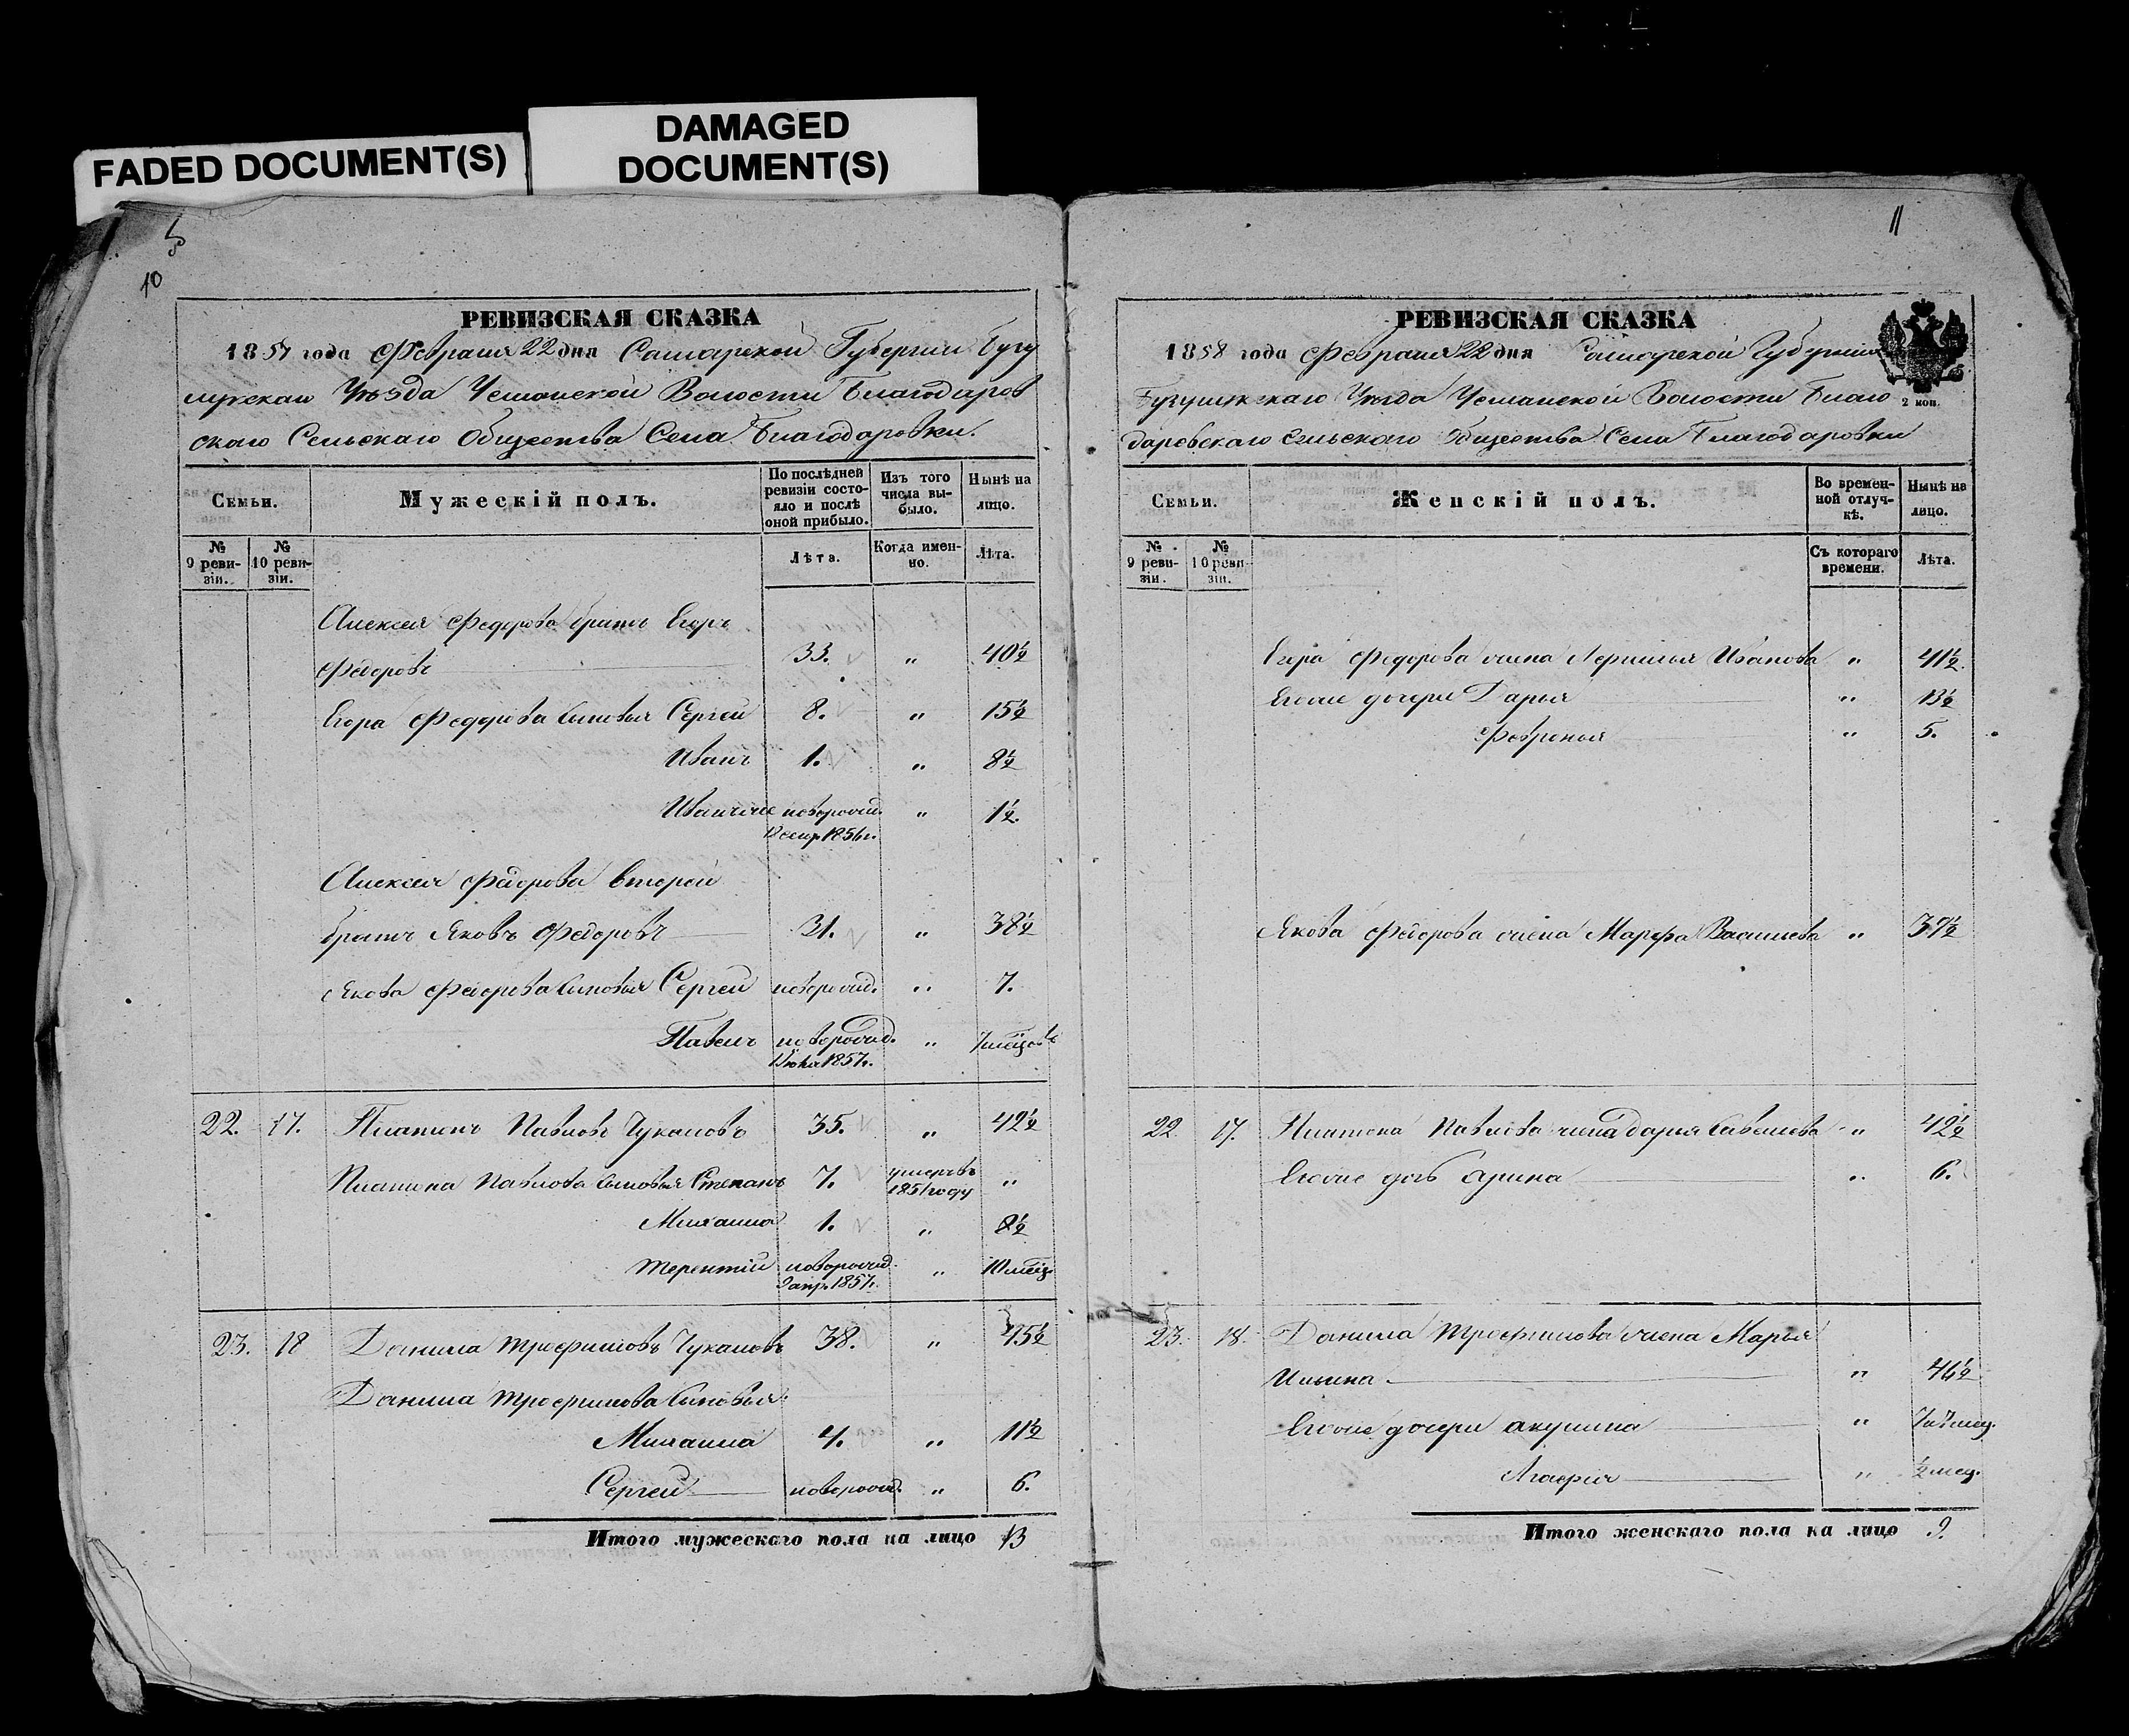 FADED DOCUMENT(S)
DAMAGED
DOCUMENT(S)
10
РЕВИЗСКАЯ СКАЗКА
1857 года Февраля 22 дня Самарской Губернии Бугу
Уѣзда Волости Благодаров
скаго Сельскаго Общества Села Благодаровки.
Семьи.
Мужескій полъ.
По послѣдней ревизіи состояло и послѣ оной прибыло.
Изъ того числа выбыло.
Нынѣ на лицо.
№ 9 ревизіи.
№ 10 ревизіи.
Лѣта.
Когда именно.
Лѣта.
Алексея Федорова братъ Егоръ
Федоровъ 33. " 40½
Егора Федорова сыновья Сергей 8. " 15½
Иванъ 1. " 8½
новорожд. " 1½.
1856г.
Алексея Федорова второй
братъ Яковъ Федоровъ 31. " 38½
Якова Федорова сыновья Сергей новорожд. " 7.
Павелъ новорожд. " 7
1857г.
22. 17. Платонъ Павловъ Чукановъ 35. " 42½
Платона Павлова сыновья Степанъ 7. умеръ въ 1851 году "
Михаила 1. " 8½
Терентій новорожд. " 10 месц.
9 апр. 1857г.
23. 18 Данила Трофимовъ Чукановъ 38. " 45½
Данила Трофимова сыновья
Михаила 4. " 11½
Сергей новорожд. " 6.
Итого мужескаго пола на лицо 13
11
РЕВИЗСКАЯ СКАЗКА
1858 года Февраля 22 дня Самарской Губерніи
2 коп.
Уѣзда Волости Благо
даровскаго Сельскаго Общества Села Благодаровки
Семьи.
Женскій полъ.
Во временной отлучкѣ.
Нынѣ на лицо.
№ 9 ревизіи.
№ 10 ревизіи.
Съ котораго времени.
Лѣта.
Егора Федорова жена Иванова " 41½.
Егоже дочери Дарья " 13½
Февронья " 5.
Якова Федорова жена Марфа Васильева " 37½
22. 17. Платона Павлова жена Дарья Савельева " 42½
Егоже дочь Арина " 6.
23. 18. Данила Трофимова жена Марья
Ильина " 46½
Егоже дочери Акулина "
Агафья " ½ мец.
Итого женскаго пола на лицо 9.